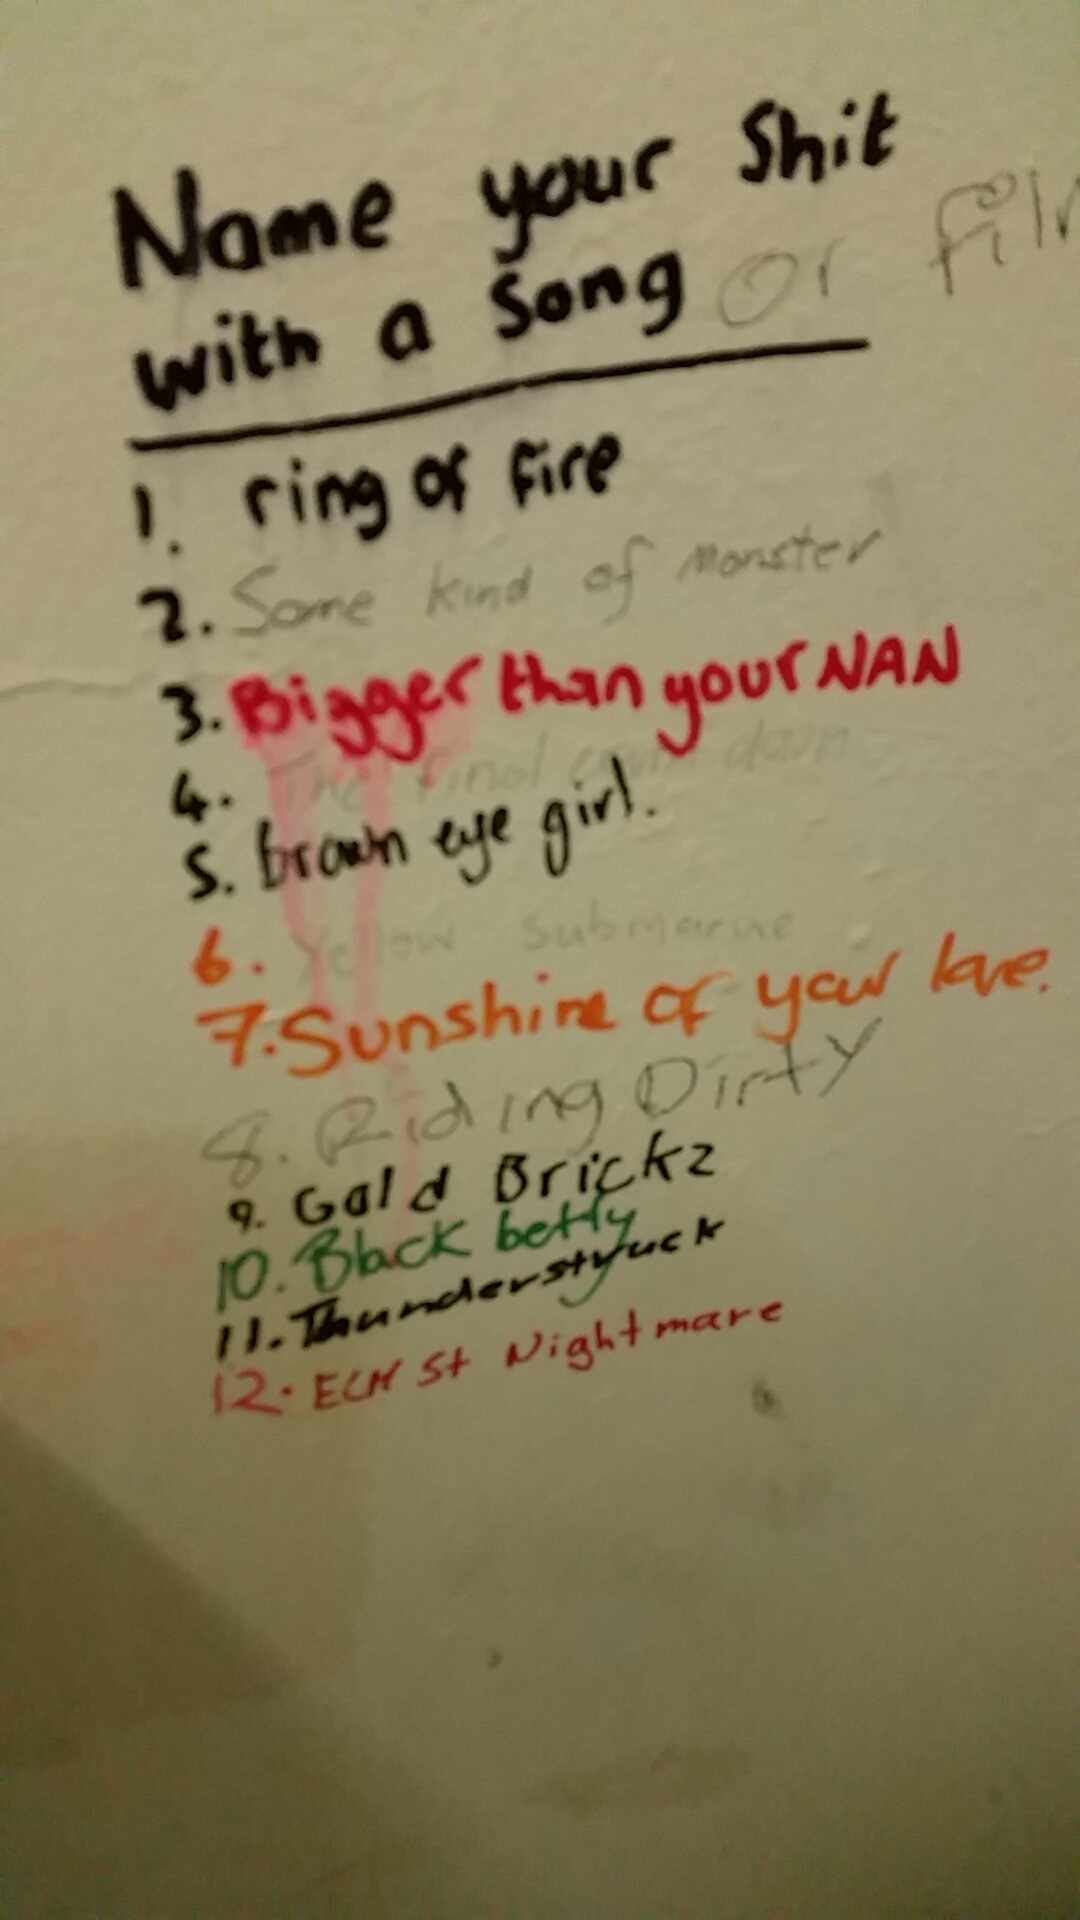 Name your Shit
with a Song or film
1. ring of fire
2. Some kind of Monster
3. Bigger than your NAN
4. The final down
5. brown eye girl.
6. Yellow submarine
7. Sunshine of your love.
8. Riding Dirty
9. Gold Brickz
10. Black betty
11. Thunderstruck
12. ELM St Nightmare